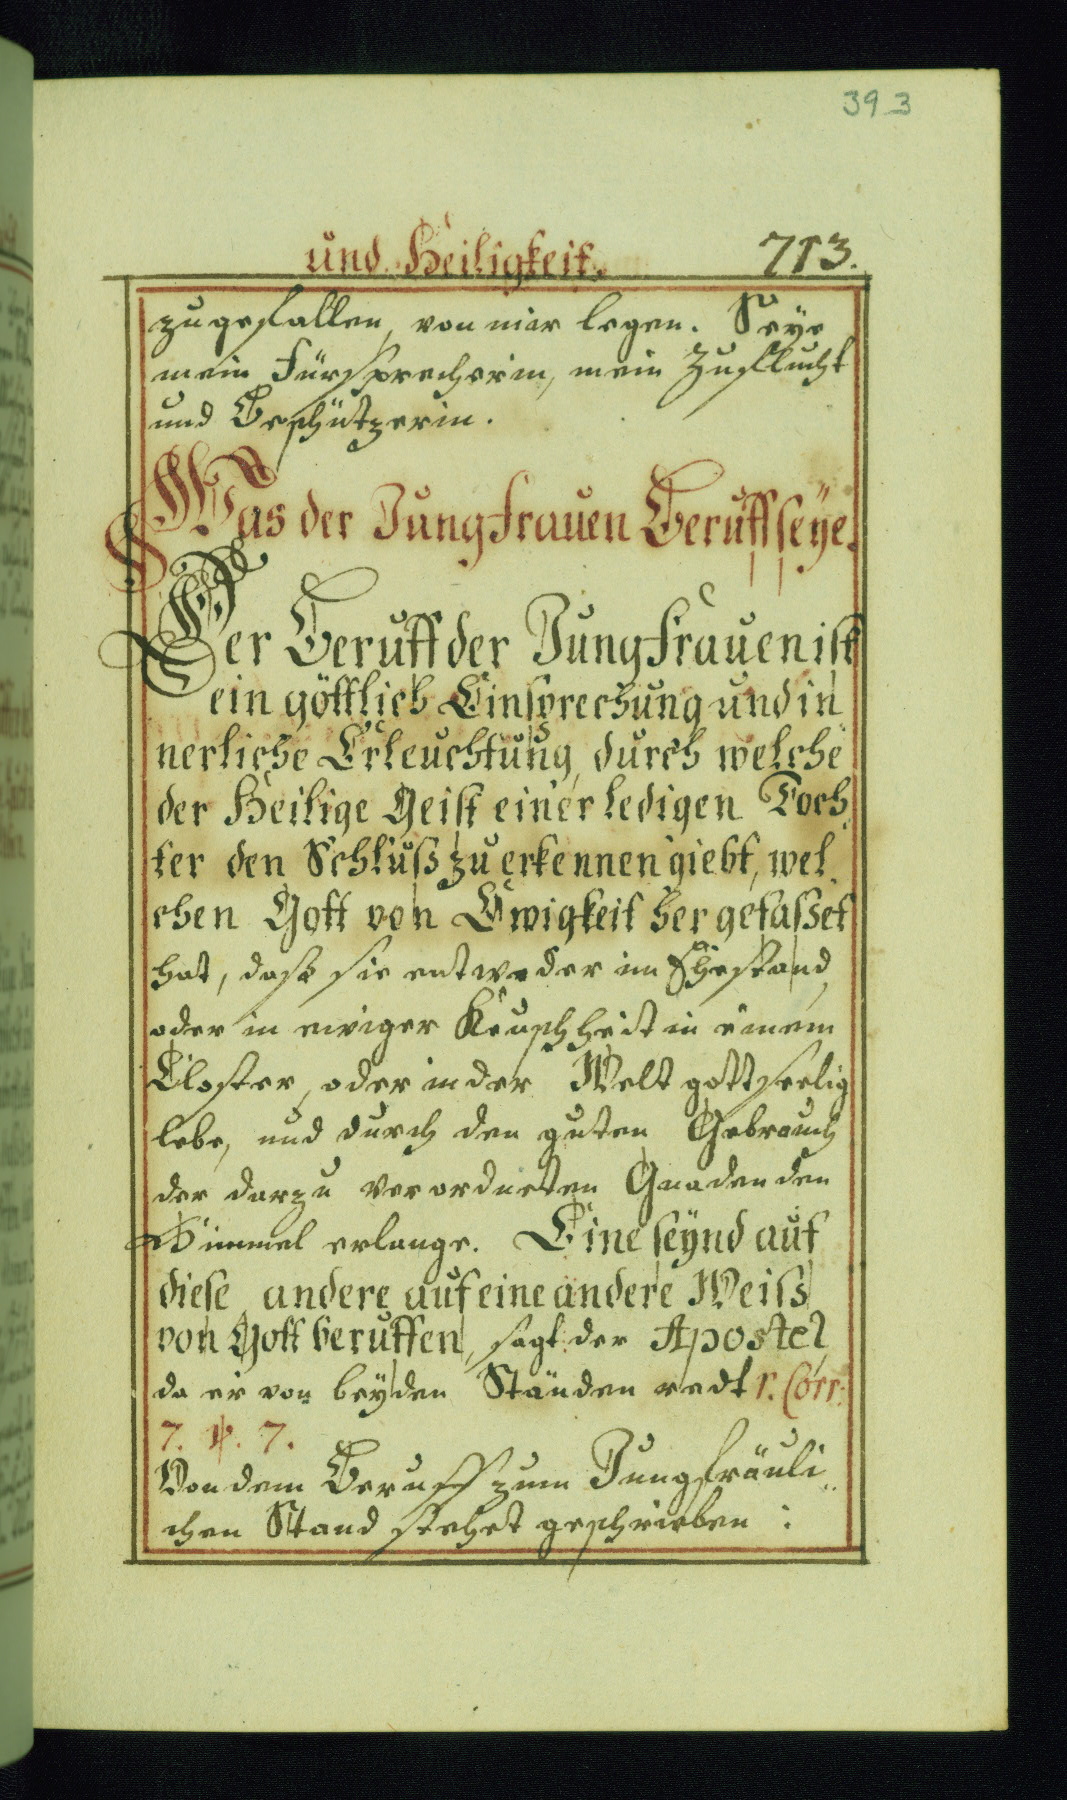 393
und Heiligkeit. 713.
zugefallen, von mir legen. Seye
mein Fürsprecherin, mein Zuflucht
und Beschützerin.
Was der Jungfrauen Beruff seÿe.
Der Beruff der Jungfrauen ist
ein göttlich Einsprechung und in
nerliche Erleuchtung, durch welche
der Heilige Geist einer ledigen Toch
ter den Schluß zu erkennen giebt, wel
chen Gott von Ewigkeit her gefasset
hat, daß sie entweder im Ehestand,
oder in ewiger Keuschheit in einem
Closter, oder in der Welt gottseelig
lebe, und durch den guten Gebrauch
der darzu verordneten Gnaden den
Himmel erlange. Eine seÿnd auf
diese, andere auf eine andere Weiss
von Gott beruffen, sagt der Apostel,
da er von beÿden Ständen redt 1. Corr:
7. v. 7.
Von dem Beruff zum Jungfräuli
chen Stand stehet geschrieben: